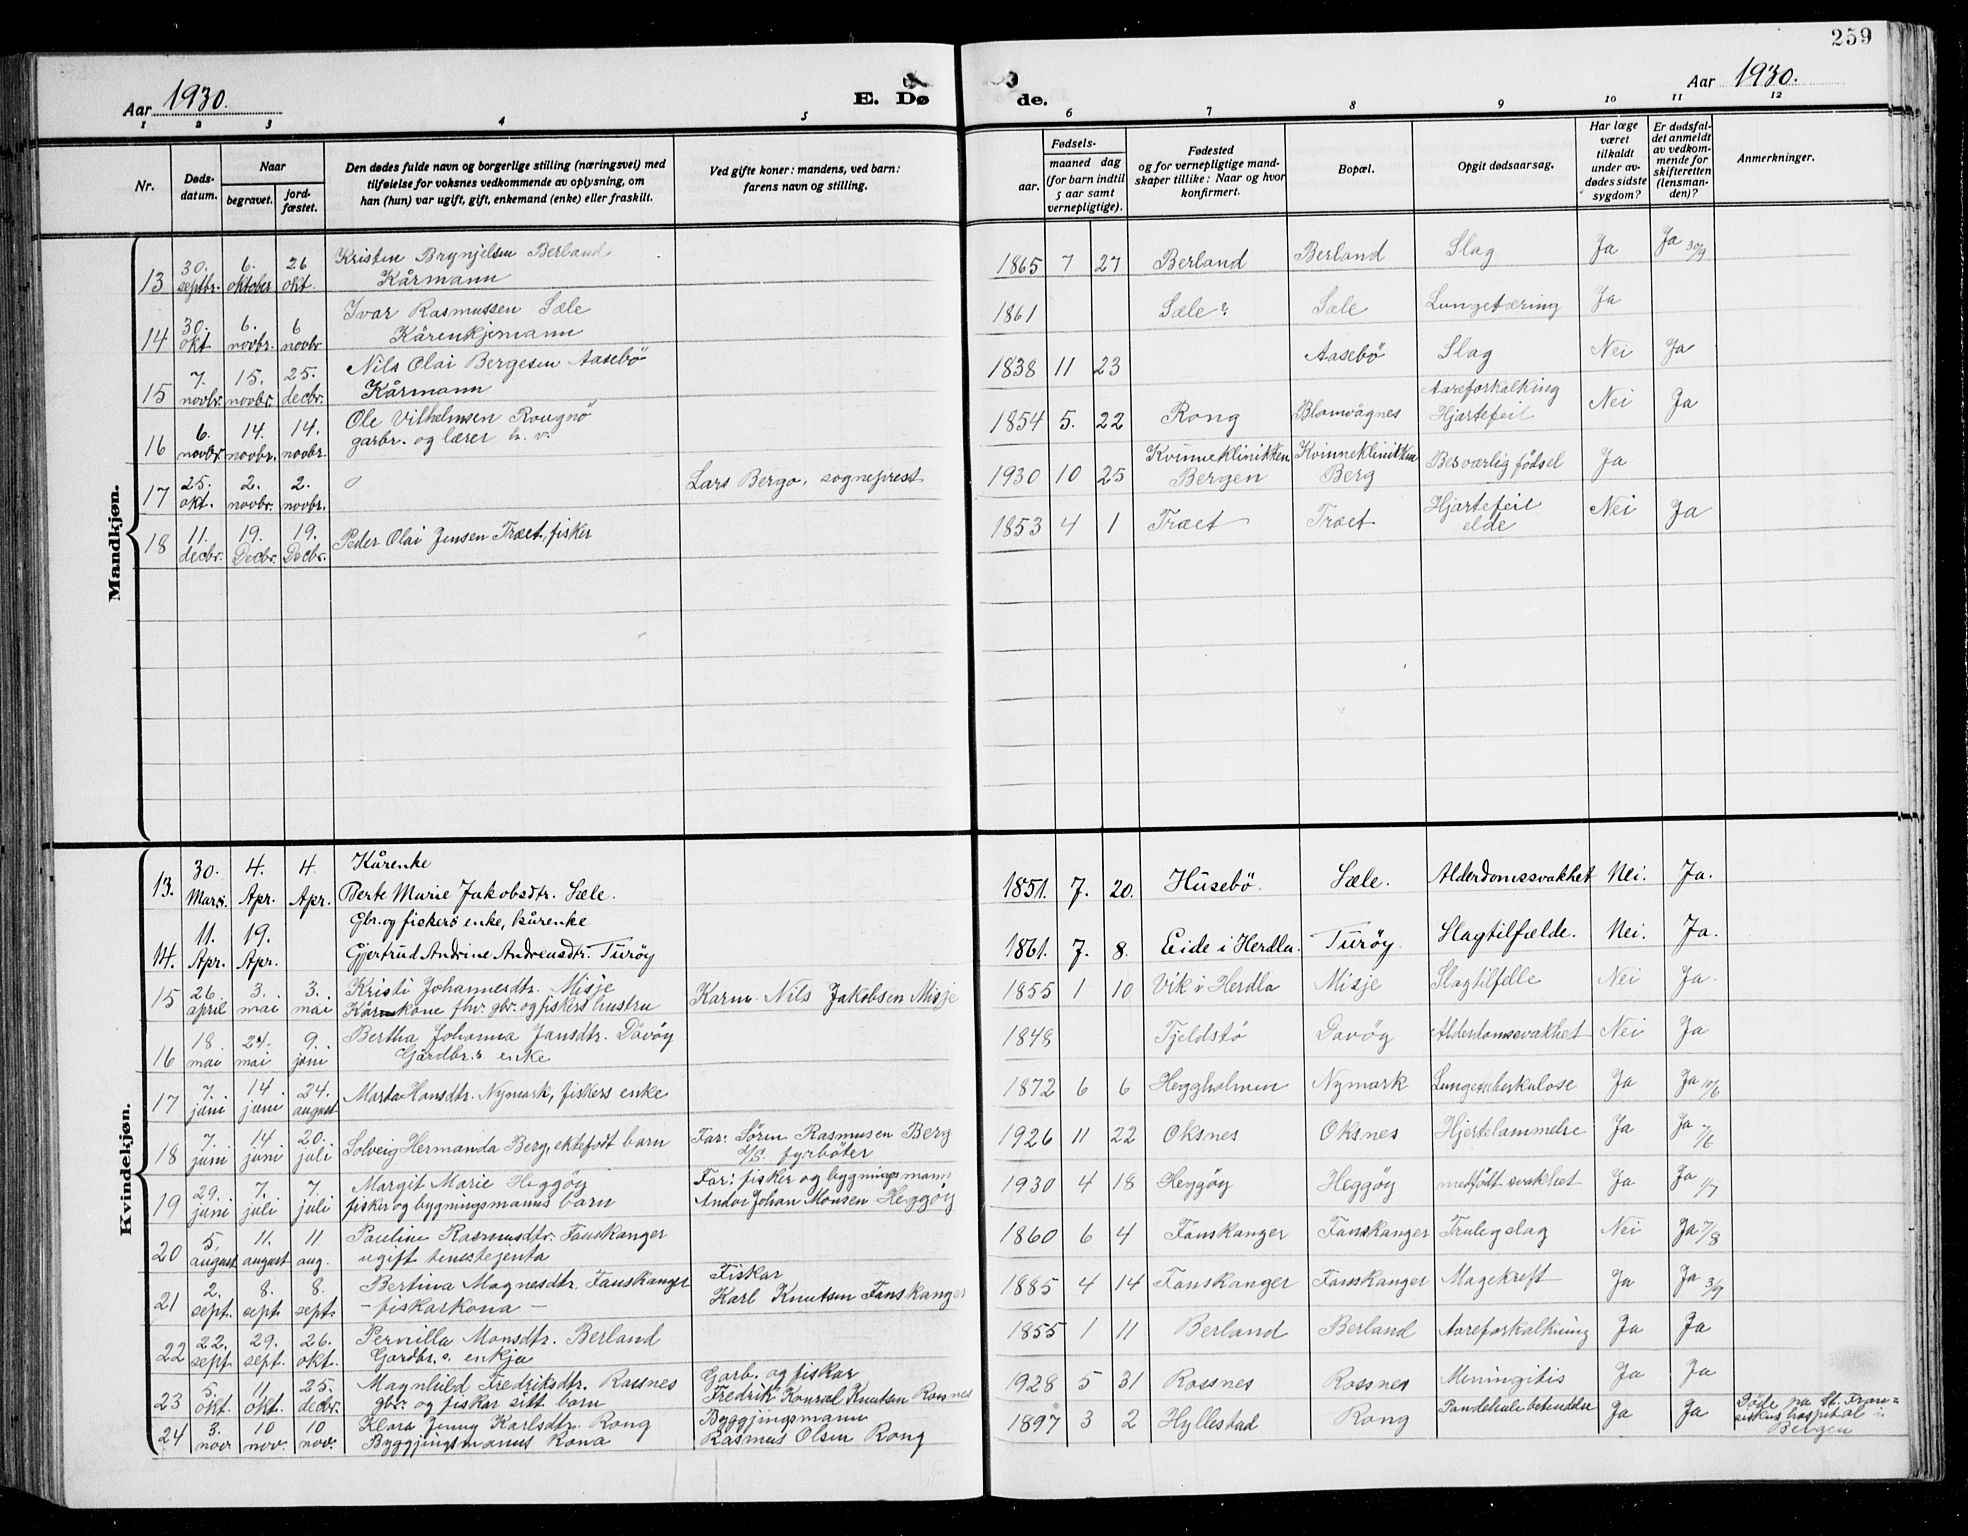 259
Aar 1930.
E. Dø
de.
Aar 1930.
1 2 3 4 5 6 7 8 9 10 11 12
Nr.
Døds-
datum.
Naar
begravet.
jord-
fæstet.
Den dødes fulde navn og borgerlige stilling (næringsvei) med
tilføielse for voksnes vedkommende av oplysning, om
han (hun) var ugift, gift, enkemand (enke) eller fraskilt.
Ved gifte koner: mandens, ved barn:
farens navn og stilling.
Fødsels-
aar.
maaned dag
(for barn indtil
5 aar samt
vernepligtige).
Fødested
og for vernepligtige mand-
skaper tillike: Naar og hvor
konfirmert.
Bopæl.
Opgit dødsaarsag.
Har læge
været
tilkaldt
under av-
dødes sidste
sygdom?
Er dødsfal-
det anmeldt
av vedkom-
mende for
skifteretten
(lensman-
den)?
Anmerkninger.
Mandkjøn.
13 30. septbr. 6. oktober 26 okt. Kristen Brynjelsen Berland
Kårmann
1865 7 27 Berland Berland Slag Ja Ja 30/9
14 30. okt 6. novbr. 6 novbr Ivar Rasmussen Sæle
Kårenkjemann
1861 Sæle? Sæle Lungetæring Ja
15 7. novbr. 15. novbr. 25. decbr. Nils Olai Bergesen Aasebö
Kårmann
1838 11 23 Aasebö Slag Nei Ja
16 6. novbr 14. novbr. 14. novbr. Ole Vilhelmsen Rongnö
garbr. og lærer h. v.
1854 5. 22 Rong Blomvågnes Aareforkalking
Hjartefeil Nei Ja
17 25. okt. 2. novbr. 2. novbr. Lars Bergo, sogneprest
1930 10 25 Kvinneklinikken
Bergen Kvinneklinikken
Berg Besværlig fødsel Ja
18 11. decbr. 19. Decbr. 19. Decbr. Peder Olai Jensen Træet, fisker
1853 4 1 Træet Træet Hjartefeil
elde Nei Ja
Kvindekjøn.
13. 30. Mars. 4. Apr. 4. Apr. Kårenke
Berte Marie Jakobsdtr. Sæle.
1851. 7. 20. Husebö. Sæle. Alderdomssvakhet Nei. Ja.
14. 11. Apr. 19. Apr. Gbr. og fiskers enke, kårenke
Gjertrud Andrine Andreasdtr. Turöy
1861. 7. 8. Eide i Herdla. Turöy. Slagtilfælde. Nei. Ja.
15 26 april 3. mai 3. mai Kristi Johannesdtr. Misje
Kårkone fhv. gbr. og fiskers hustru Karm. Nils Jakobsen Misje
1855 1 10 Vik i Herdla Misje Slagtilfelle Nei Ja.
16 18. mai 24. mai 9. juni Bertha Johanna Jansdtr. Davöy
Gårdbr.s enke
1848 Tjeldstö Davöy Alderdomssvakhet Nei Ja
17 7. juni 14 juni 24. august Marta Hansdtr. Nymark, fiskers enke
1872 6 6 Heggholmen Nymark Lungetuberkulose Ja Ja 10/6
18 7. juni 14 juni 20. juli Solveig Hermanda Berg, ektefödt barn Far: Sören Rasmusen Berg
d/s. fyrböter
1926 11 22 Oksnes Oksnes Hjertelammelse Ja Ja 7/6
19 29. juni 7. juli 7. juli Margit Marie Heggöy
fisker og bygningsmanns barn Far: fisker og bygningsmann
Andor Johan Monsen Heggöy
1930 4 18 Heggöy Heggöy medfödt svakhet Ja Ja 1/7
20 5. august 11. august 11 aug. Pauline Rasmusdtr. Fanskanger
ugift tenestejenta
1860 6 4 Fanskanger Fanskanger Truleg slag Nei Ja 7/8
21 2. sept. 8. sept. 8. sept. Bertina Magnesdtr. Fanskanger
- fiskarkona - Fiskar
Karl Knutsen Fanskanger
1885 4 14 Fanskanger Fanskanger Magekreft Ja Ja 3/9
22 22. sept 29. sept. 26. okt. Pernilla Monsdtr. Berland
Gardbr.s. enkja
1855 1 11 Berland Berland Aareforkalkning Ja Ja
23 5. okt. 11. okt. 25. decbr. Magnhild Fredriksdtr. Rossnes
gbr. og fiskar sitt barn Garb. og fiskar
Fredrik Konrad Knutsen Rossnes
1928 5 31 Rossnes Rossnes Meningitis Ja Ja
24 3. nov 10 nov. 10 nov. Klara Jenny Karlsdtr. Rong
Byggjingsmanns Kona Byggjingsmann
Rasmus Olsen Rong
1897 3 2 Hyllestad Rong Pandehulebetendelse Ja Ja Døde på St. Fran-
siskus hospital i
Bergen